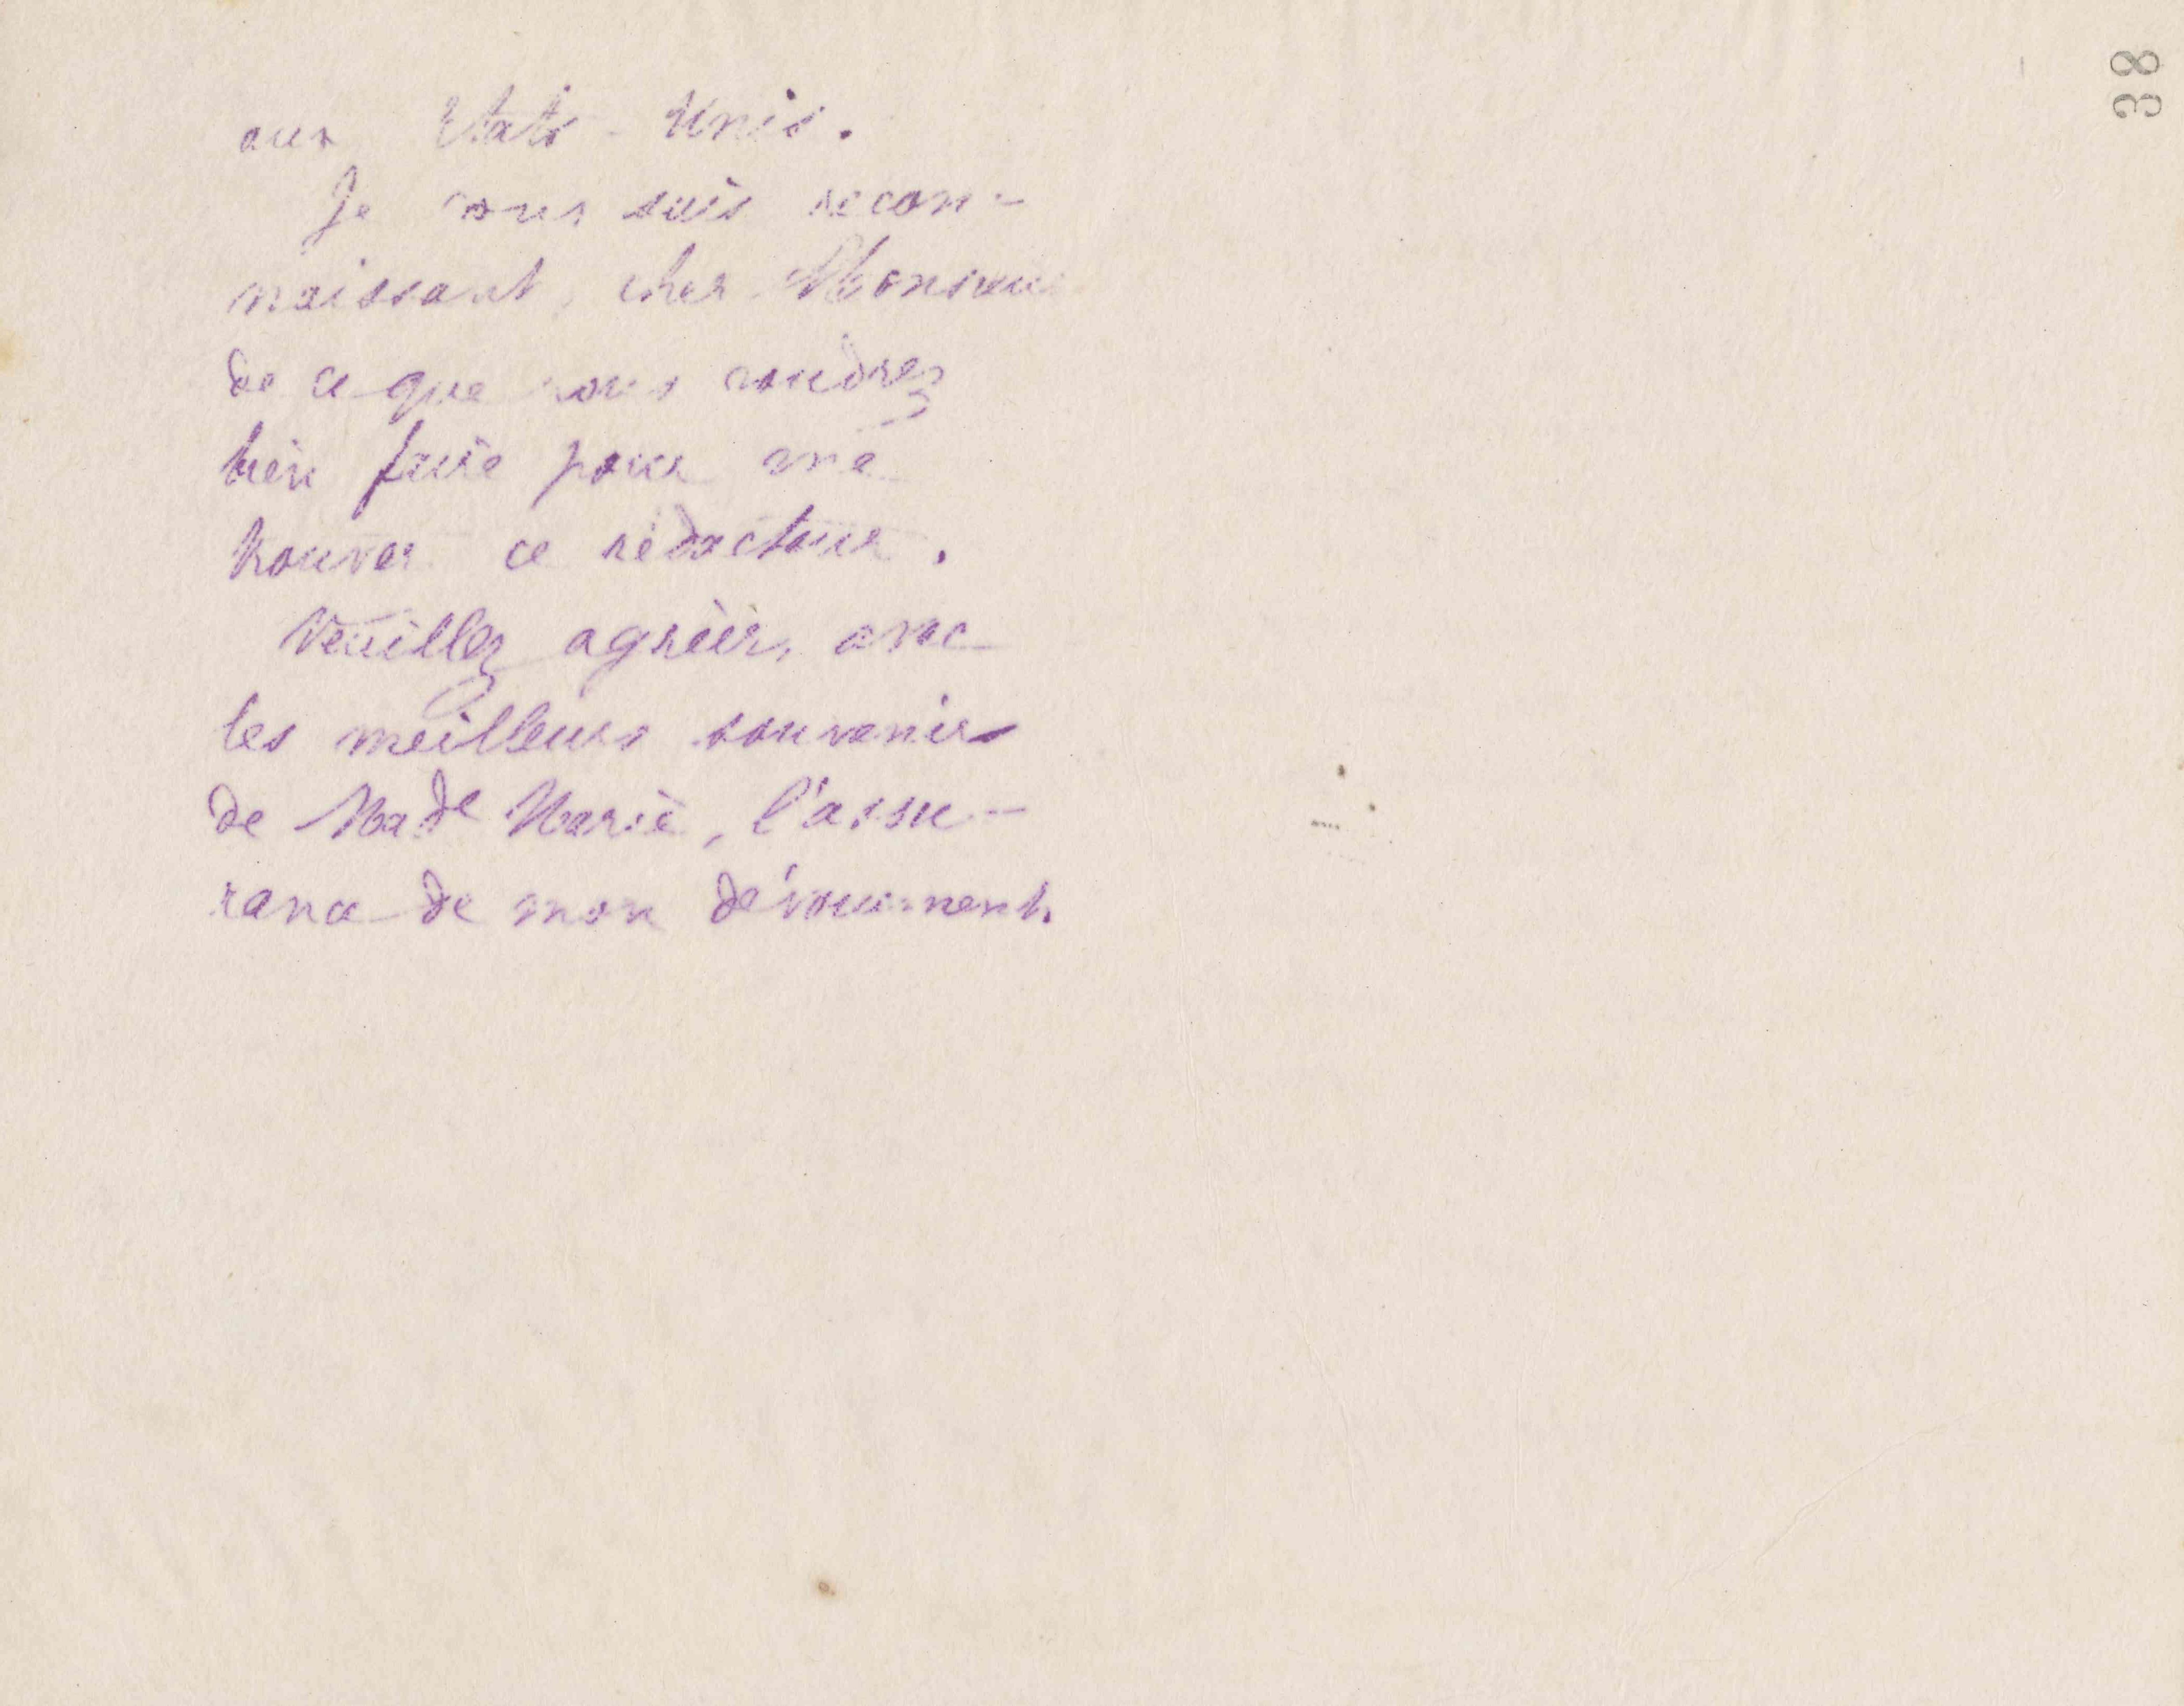 aux Etats-Unis.
Je vous suis recon-
naissant, cher Monsieur
de ce que vous voudrez
bien faire pour me
trouver ce rédacteur.
Veuillez agréer, avec
les meilleurs souvenirs
de Made Marie, l'assu-
rance de mon dévouement.
38